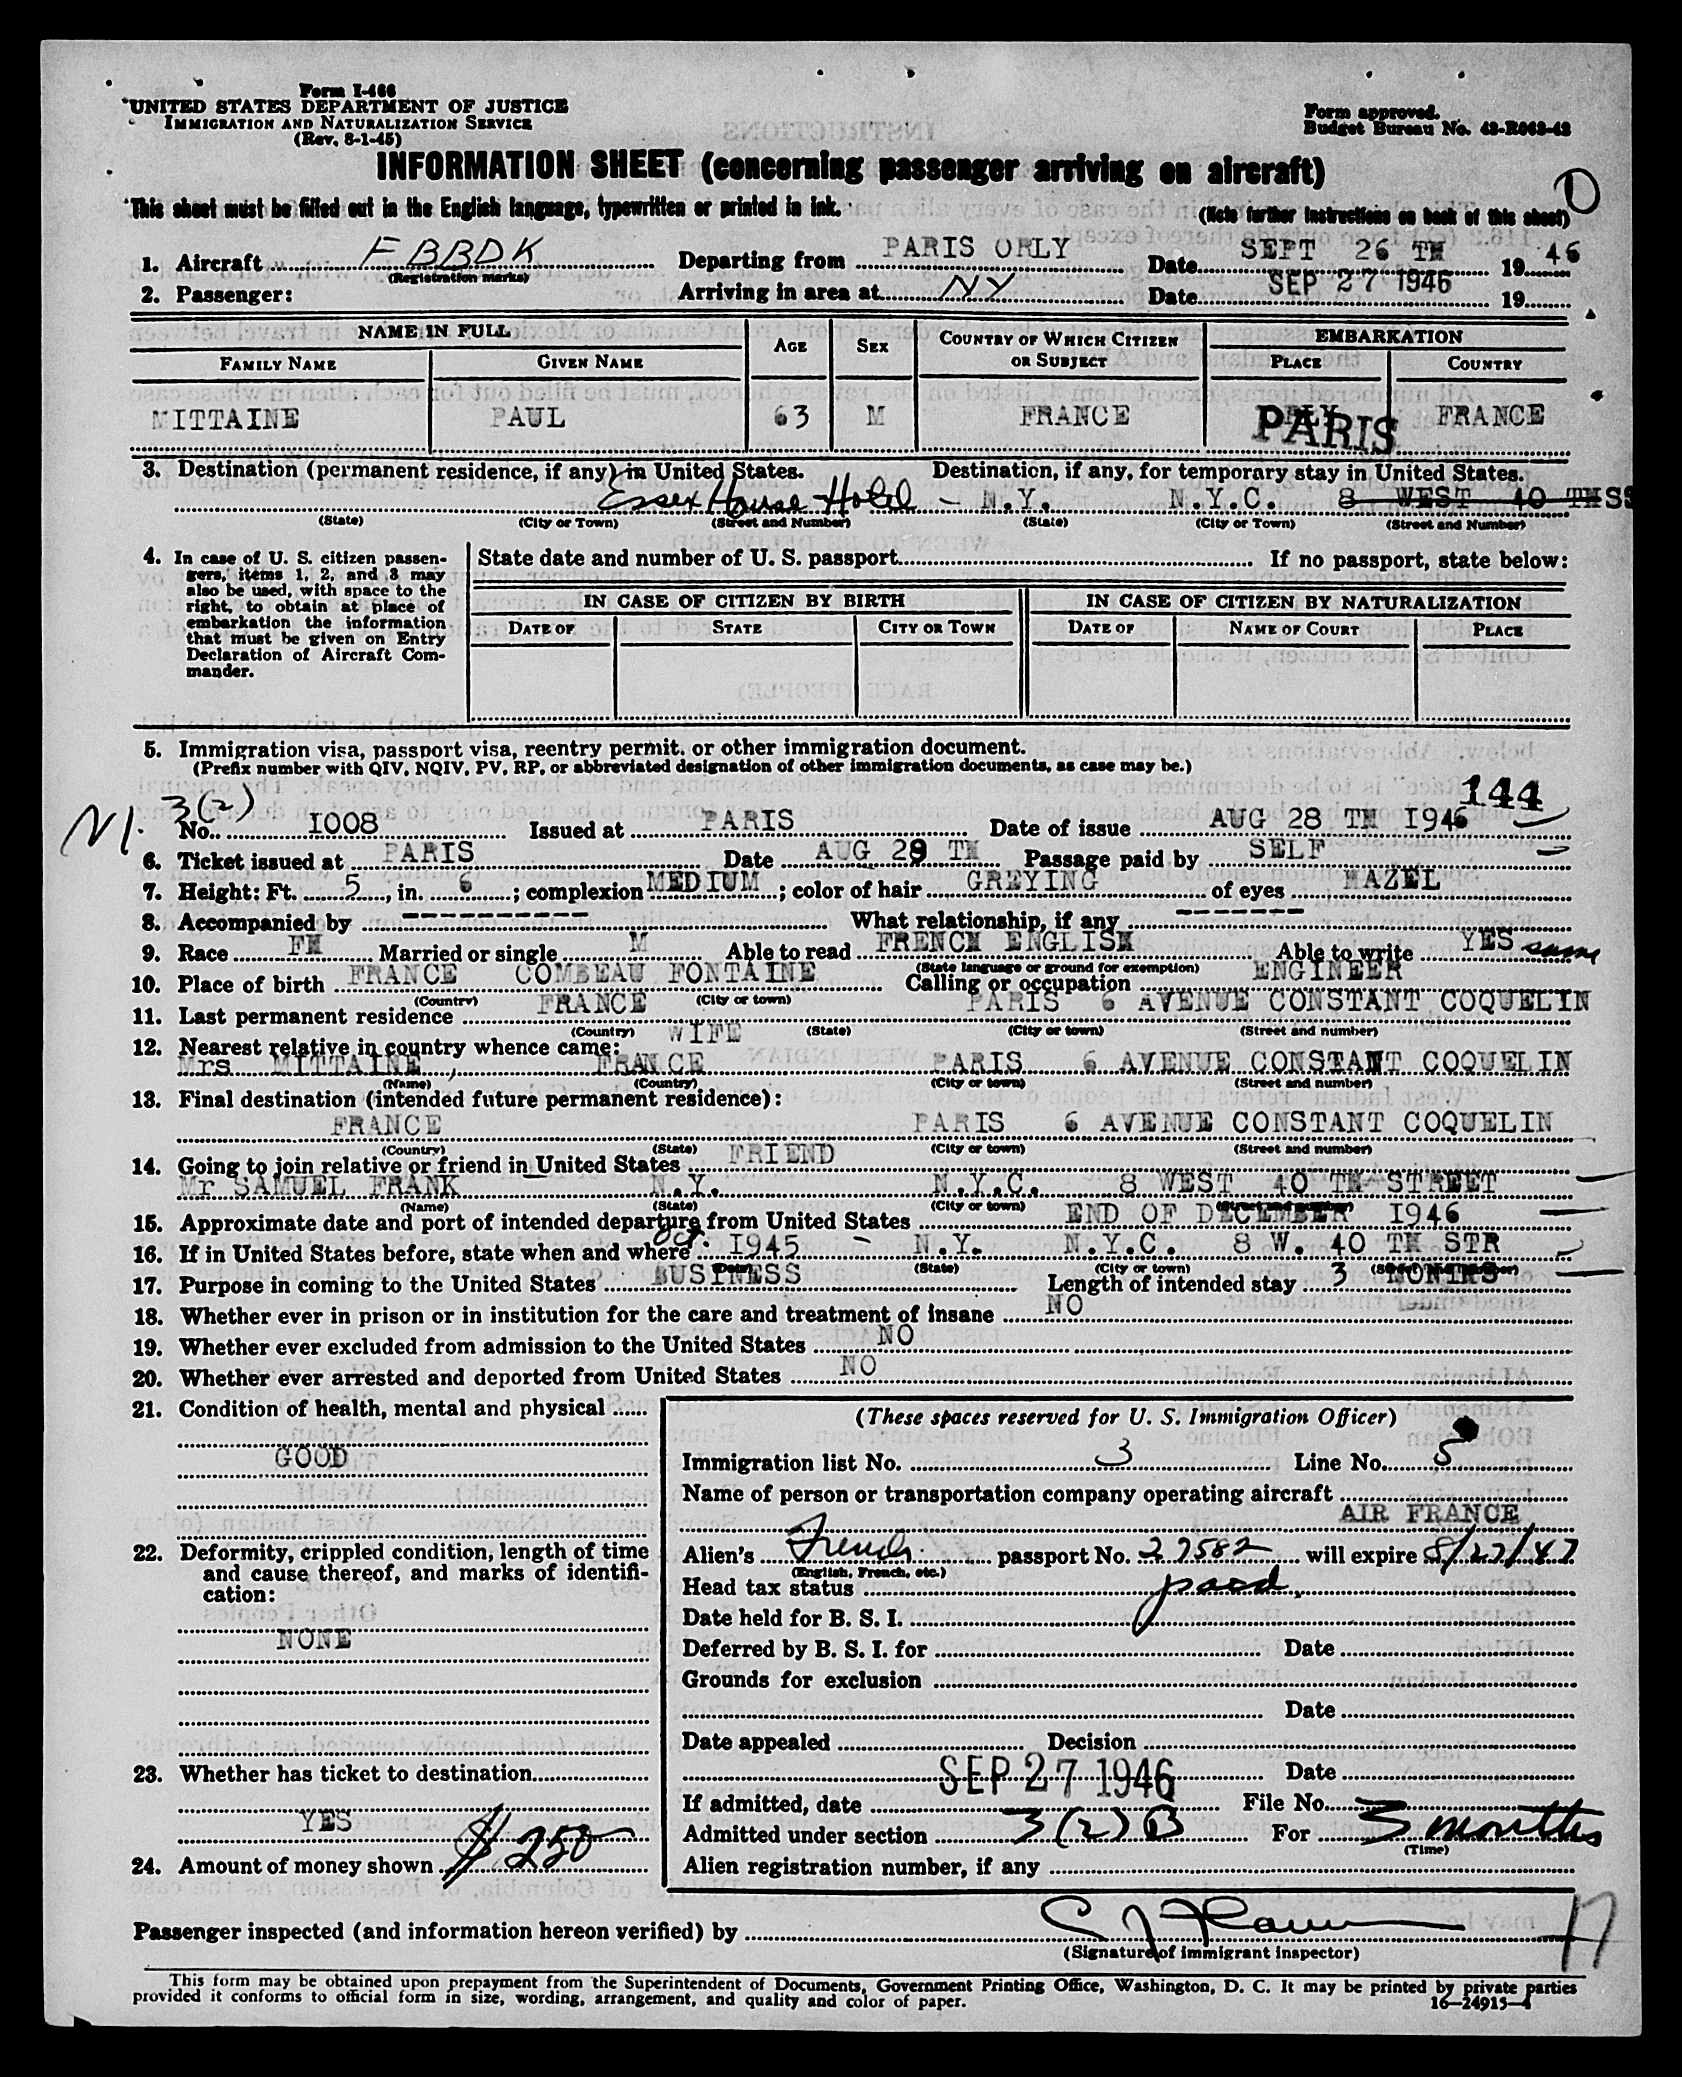 Form I-466
UNITED STATES DEPARTMENT OF JUSTICE
IMMIGRATION AND NATURALIZATION SERVICE
(Rev. 8-1-45)
Form approved.
Budget Bureau No. 43-R063-43
INFORMATION SHEET (concerning passenger arriving on aircraft)
This sheet must be filled out in the English language, typewritten or printed in ink.
(Note further instructions on back of this sheet)
1. Aircraft F BBDK Departing from PARIS ORLY Date SEPT 26 TH 1946
(Registration marks)
2. Passenger: Arriving in area at NY Date SEP 27 1946 19
NAME IN FULL AGE SEX COUNTRY OF WHICH CITIZEN OR SUBJECT EMBARKATION
FAMILY NAME GIVEN NAME PLACE COUNTRY
MITTAINE PAUL 63 M FRANCE PARIS FRANCE
3. Destination (permanent residence, if any) in United States. Destination, if any, for temporary stay in United States.
Essex House Hotel - N.Y. N.Y.C. 8 WEST 40 TH S
(State) (City or Town) (Street and Number) (State) (City or Town) (Street and Number)
4. In case of U. S. citizen passengers, items 1, 2, and 3 may
also be used, with space to the
right, to obtain at place of
embarkation the information
that must be given on Entry
Declaration of Aircraft Commander.
State date and number of U. S. passport If no passport, state below:
IN CASE OF CITIZEN BY BIRTH IN CASE OF CITIZEN BY NATURALIZATION
DATE OF STATE CITY OR TOWN DATE OF NAME OF COURT PLACE
5. Immigration visa, passport visa, reentry permit, or other immigration document.
(Prefix number with QIV, NQIV, PV, RP, or abbreviated designation of other immigration documents, as case may be.)
144
3(2)
No. I008 Issued at PARIS Date of issue AUG 28 TH I946
6. Ticket issued at PARIS Date AUG 29 TH Passage paid by SELF
7. Height: Ft. 5, in. 6; complexion MEDIUM; color of hair GREYING of eyes HAZEL
8. Accompanied by ---------- What relationship, if any -------
9. Race FH Married or single M Able to read FRENCH ENGLISH Able to write YES same
(State language or ground for exemption)
10. Place of birth FRANCE COMBEAU FONTAINE Calling or occupation ENGINEER
(Country) (City or town)
11. Last permanent residence FRANCE PARIS 6 AVENUE CONSTANT COQUELIN
(Country) (State) (City or town) (Street and number)
12. Nearest relative in country whence came: WIFE
Mrs MITTAINE, FRANCE PARIS 6 AVENUE CONSTANT COQUELIN
(Name) (Country) (City or town) (Street and number)
13. Final destination (intended future permanent residence):
FRANCE PARIS 6 AVENUE CONSTANT COQUELIN
(Country) (State) (City or town) (Street and number)
14. Going to join relative or friend in United States FRIEND
Mr SAMUEL FRANK N.Y. N.Y.C. 8 WEST 40 TH STREET
(Name) (State) (City or town) (Street and number)
15. Approximate date and port of intended departure from United States END OF DECEMBER I946
16. If in United States before, state when and where Oct. I945 - N.Y. N.Y.C. 8 W. 40 TH STR
(Date) (State) (City or town) (Street and number)
17. Purpose in coming to the United States BUSINESS Length of intended stay 3 MONTHS
18. Whether ever in prison or in institution for the care and treatment of insane NO
19. Whether ever excluded from admission to the United States NO
20. Whether ever arrested and deported from United States NO
21. Condition of health, mental and physical
GOOD
22. Deformity, crippled condition, length of time
and cause thereof, and marks of identification:
NONE
23. Whether has ticket to destination
YES
24. Amount of money shown $ 250
(These spaces reserved for U. S. Immigration Officer)
Immigration list No. 3 Line No. 5
Name of person or transportation company operating aircraft
AIR FRANCE
Alien's French passport No. 27582 will expire 8/27/47
(English, French, etc.)
Head tax status paid
Date held for B. S. I.
Deferred by B. S. I. for Date
Grounds for exclusion
Date
Date appealed Decision
Date
If admitted, date SEP 27 1946 File No.
Admitted under section 3(2)B For 3 months
(Time)
Alien registration number, if any
Passenger inspected (and information hereon verified) by
(Signature of immigrant inspector)
This form may be obtained upon prepayment from the Superintendent of Documents, Government Printing Office, Washington, D. C. It may be printed by private parties
provided it conforms to official form in size, wording, arrangement, and quality and color of paper.
16—24915-4